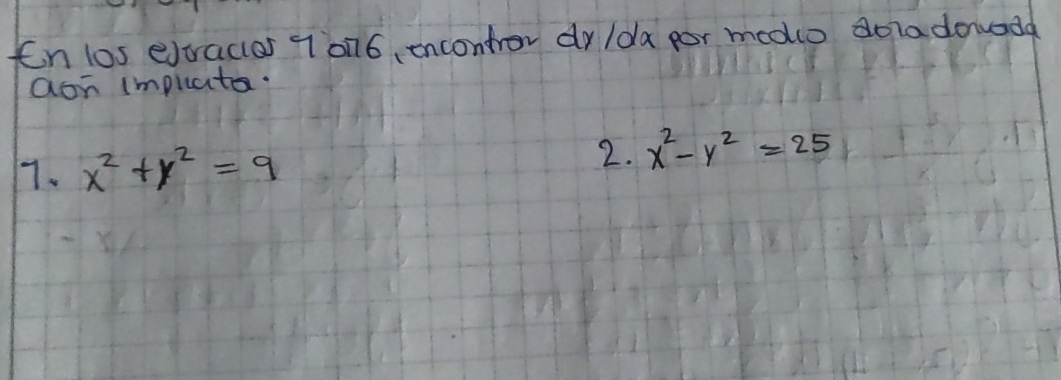 En los ejercicios 1 a 16, encontrar dy/dx por medio de la derivada
ción implicita.
1. x² + y² = 9
2. x² - y² = 25